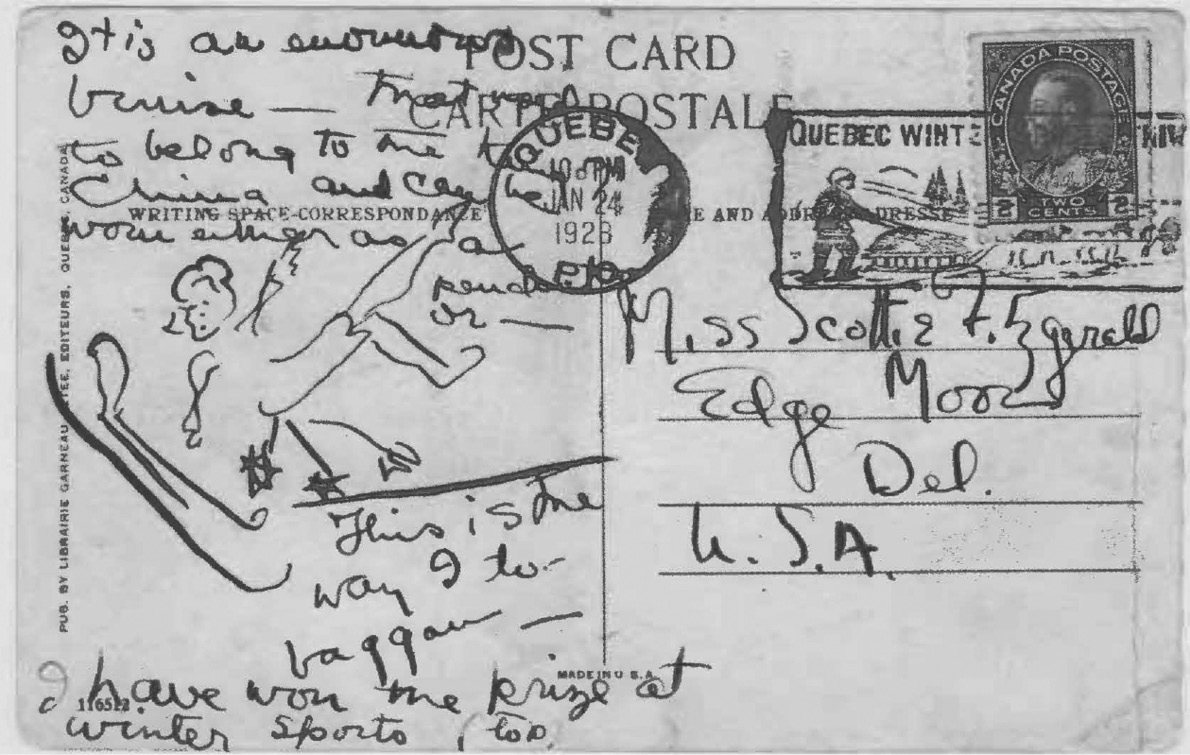 It is an enormous
bruise — that used
to belong to me
China and can be
worn either as a
or —
This is the
way I to-
baggan —
I have won the prize at
winter sports, too.
POST CARD
CARTE POSTALE
WRITING SPACE-CORRESPONDANCE
E AND ADDRESS-ADRESSE
PUB. BY LIBRAIRIE GARNEAU LTEE, EDITEURS, QUEBEC, CANADA
116512
MADE IN U.S.A.
QUEBEC
10 PM
JAN 24
1928
P.Q.
QUEBEC WINTE
CANADA POSTAGE
2 TWO CENTS 2
Miss Scottie Fitzgerald
Edge Moor
Del.
U.S.A.